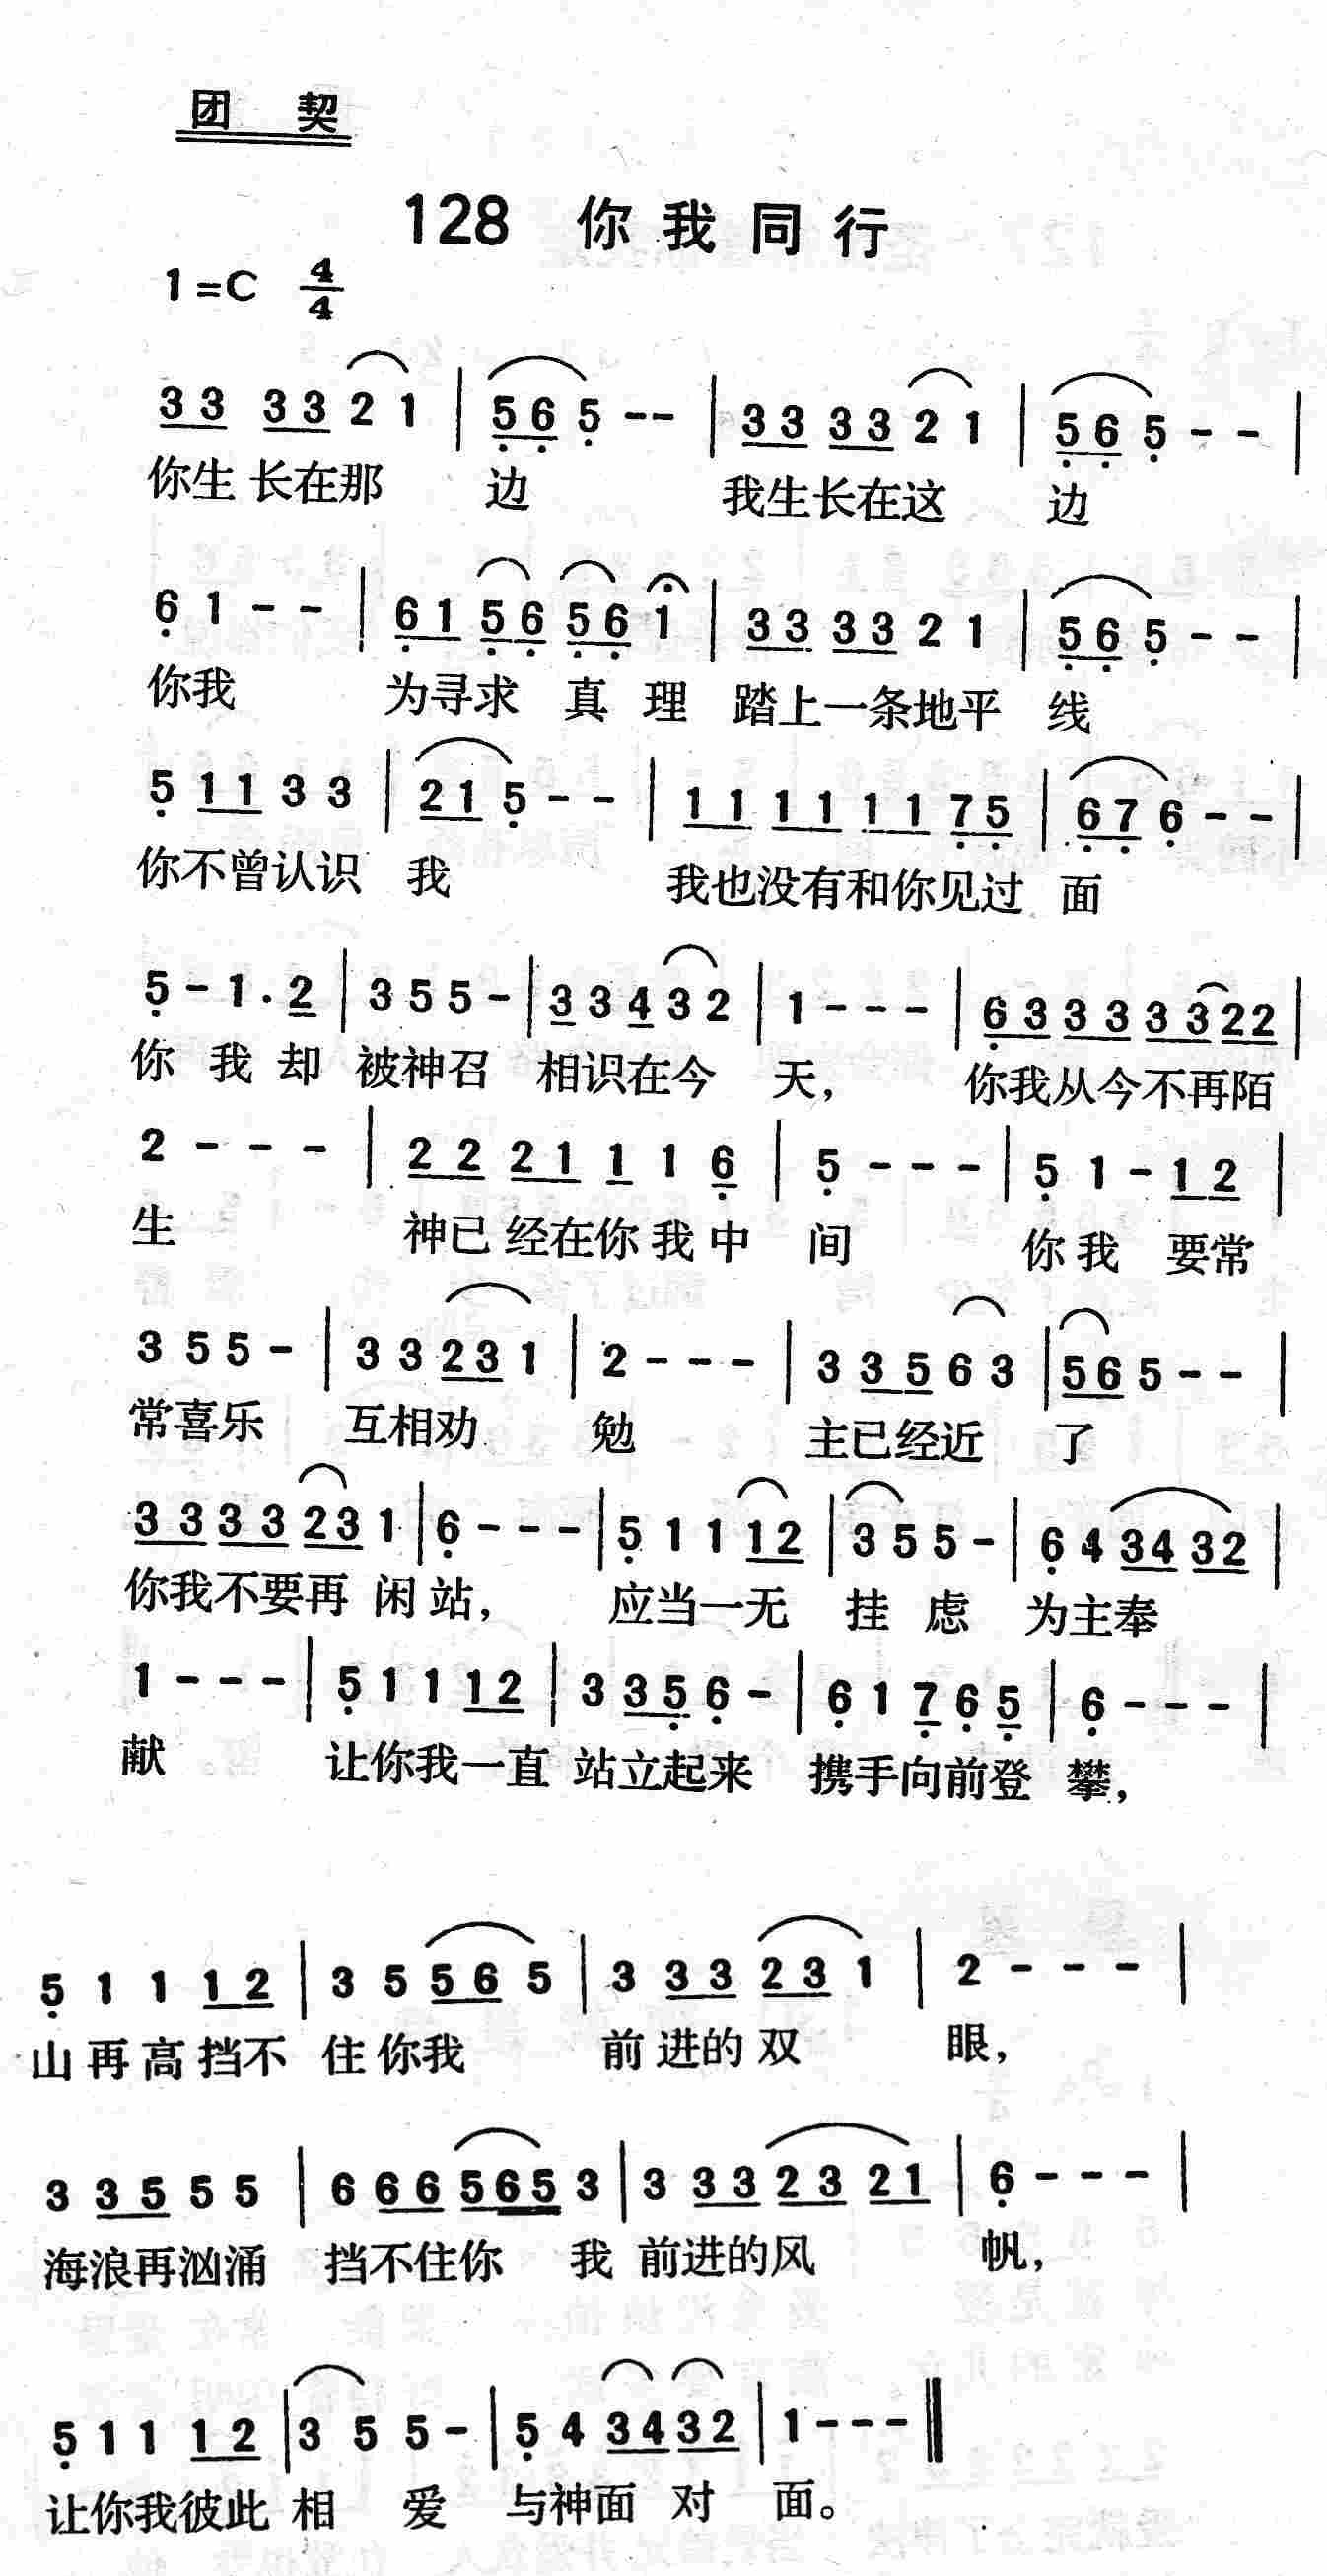 团 契
128 你我同行
1=C 4/4
33 33 2 1 | 56 5 -- | 33 33 2 1 | 56 5 - - |
你生长在那 边 我生长在这 边
6 1 - - | 61 56 56 1 | 33 33 2 1 | 56 5 - - |
你我 为寻求 真 理 踏上一条地平 线
5 11 3 3 | 21 5 - - | 11 11 11 75 | 67 6 - - |
你不曾认识 我 我也没有和你见过 面
5 - 1. 2 | 3 5 5 - | 3 3 4 3 2 | 1 - - - | 63 33 33 22 |
你 我 却 被神召 相识在今 天， 你我从今不再陌
2 - - - | 22 21 1 1 6 | 5 - - - | 5 1 - 12 |
生 神已经在你我中 间 你我 要常
3 5 5 - | 3 3 23 1 | 2 - - - | 3 35 6 3 | 56 5 - - |
常喜乐 互相劝 勉 主已经近 了
33 33 23 1 | 6 - - - | 5 1 1 12 | 3 5 5 - | 6 4 34 32 |
你我不要再 闲站， 应当一无 挂 虑 为主奉
1 - - - | 5 1 1 12 | 3 35 6 - | 6 1 7 6 5 | 6 - - - |
献 让你我一直 站立起来 携手向前登 攀，
5 1 1 12 | 3 5 56 5 | 3 33 23 1 | 2 - - - |
山再高挡不 住你我 前进的双 眼，
3 35 5 5 | 6 66 565 3 | 3 33 23 21 | 6 - - - |
海浪再汹涌 挡不住你 我 前进的风 帆，
5 1 1 12 | 3 5 5 - | 5 4 34 32 | 1 - - - ‖
让你我彼此 相 爱 与神面 对 面。